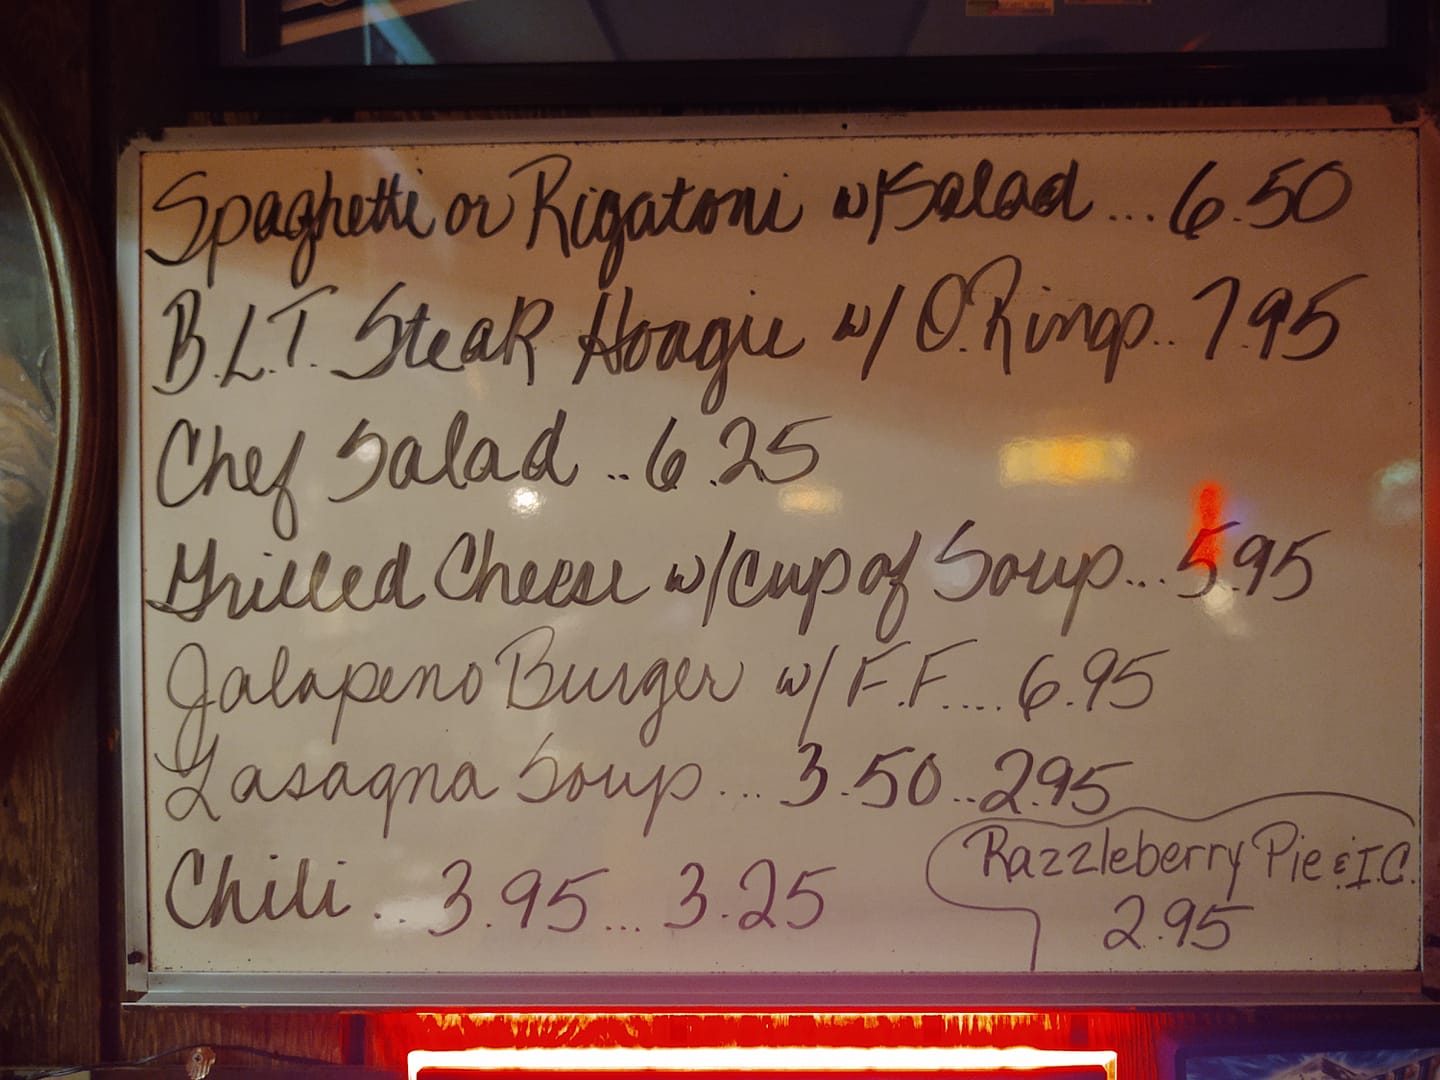 Spaghetti or Rigatoni w/Salad...6.50
B.L.T. Steak Hoagie w/ O.Rings..7.95
Chef Salad..6.25
Grilled Cheese w/cup of Soup...5.95
Jalapeno Burger w/ F.F....6.95
Lasagna Soup...3.50..2.95
Chili...3.95...3.25
Razzleberry Pie & I.C.
2.95